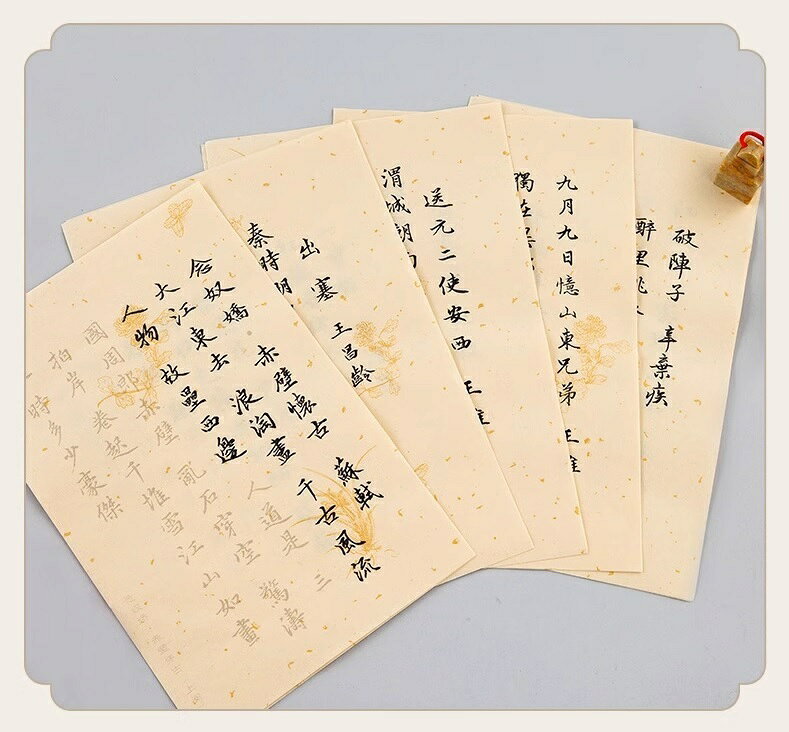 破陣子 辛棄疾
醉里挑
九月九日憶山東兄弟 王維
獨在
送元二使安西 王維
渭城朝
出塞 王昌齡
秦時明
念奴嬌 赤壁懷古 蘇軾
大江東去 浪淘盡 千古風流
人物 故壘西邊 人道是 三
國周郎赤壁 亂石穿空 驚濤
拍岸 卷起千堆雪 江山如畫
時多少豪傑